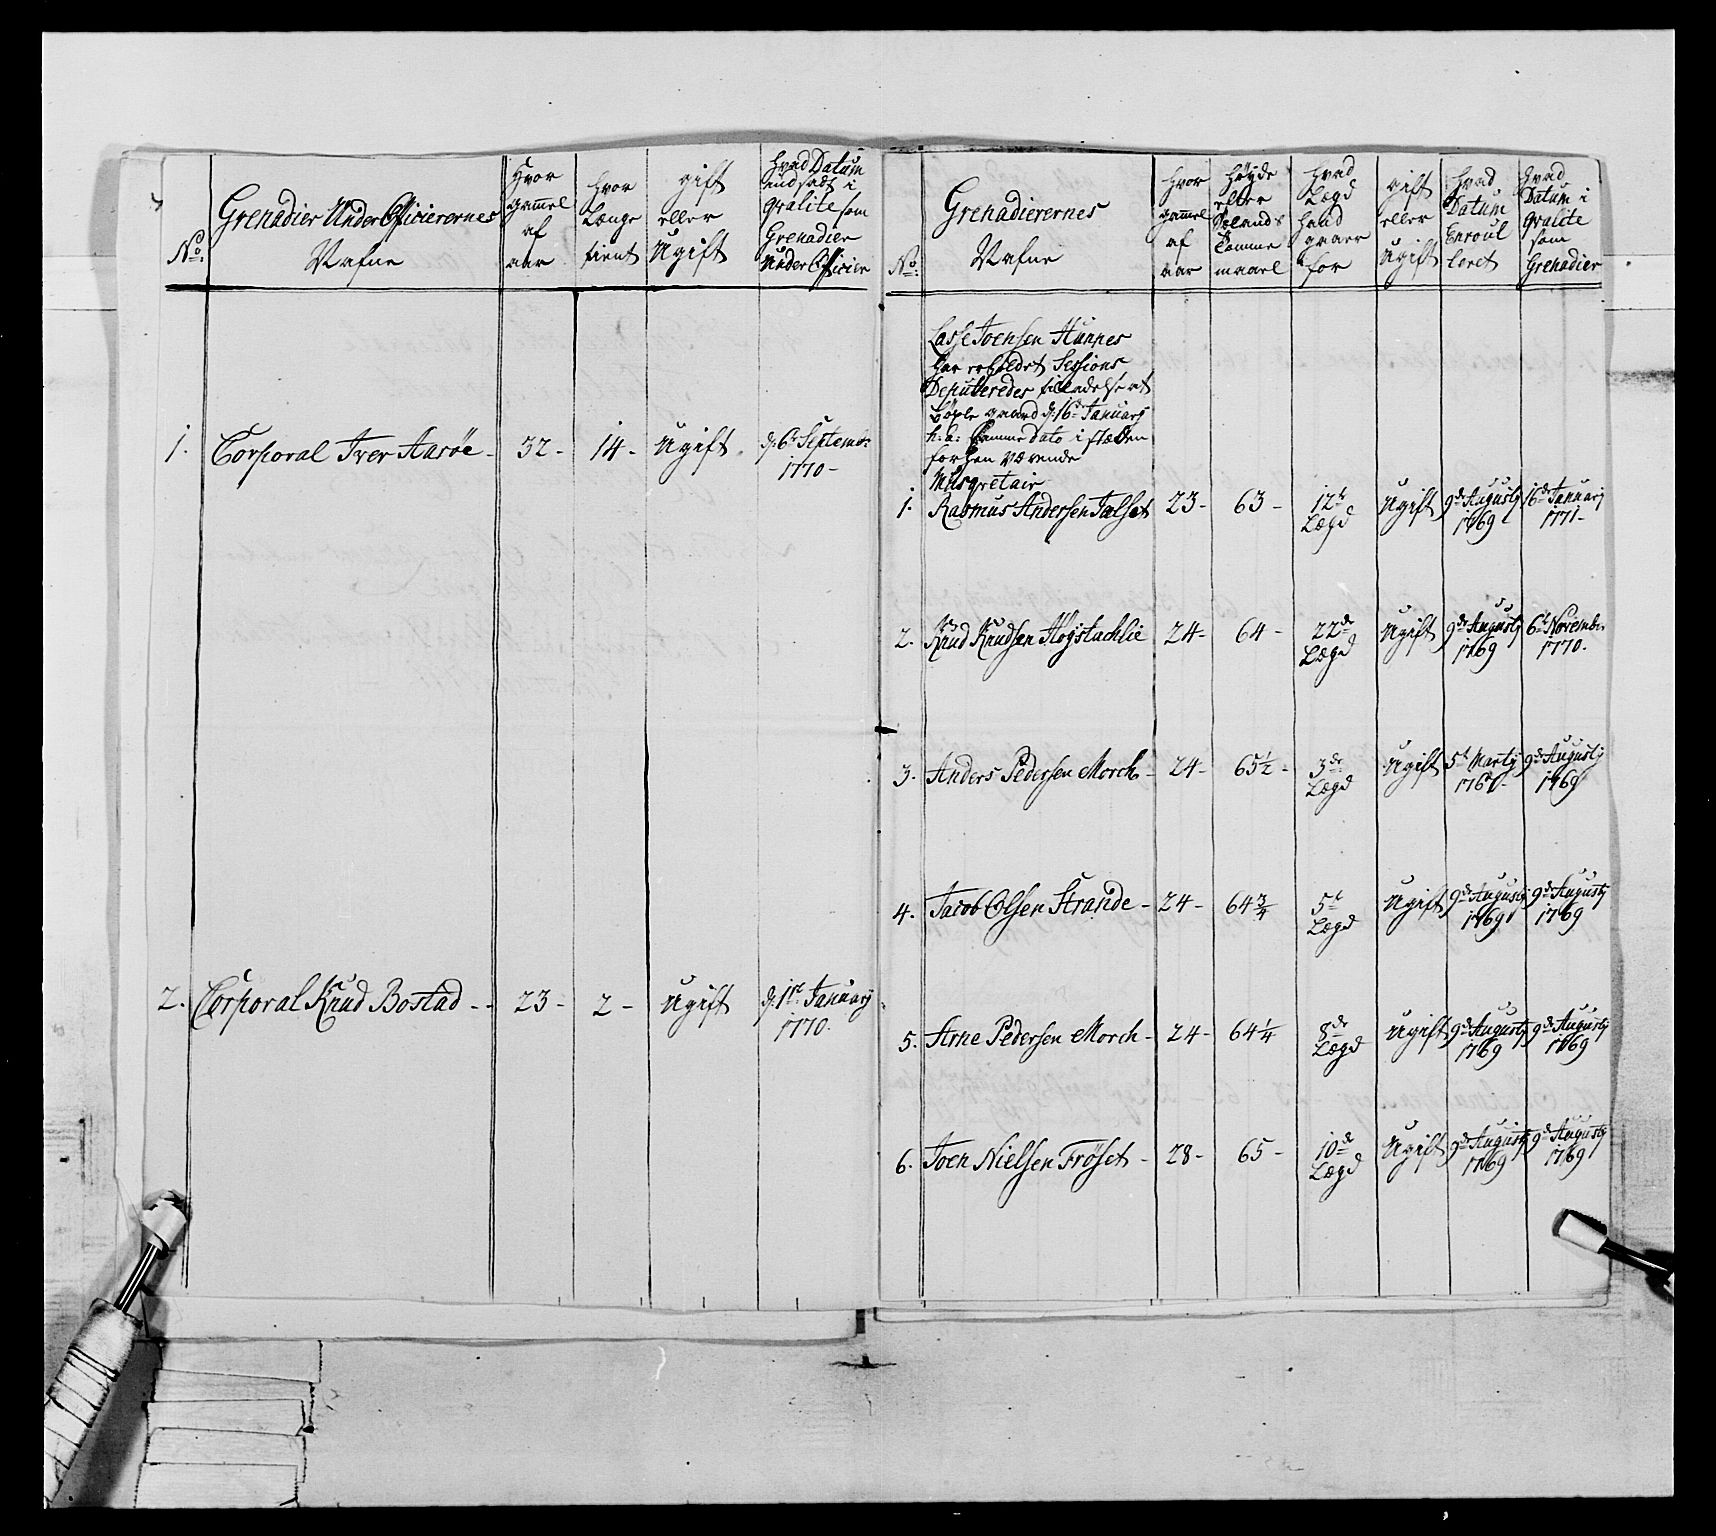 No:
Grenadier Under Officierernes
Nafne
Hvor
gammel
af
aar
hvor
Længe
tient
gift
eller
Ugift
hvad Datum
indsadt i
qvalite som
Grenadier
Under Officier
1. Corporal Iver Aasöe - 32 - 14 - Ugift d: 6t Septembr: 1770 -
2. Corporal Knud Bostad - - 23 - 2 - Ugift d: 1te Januarij 1770.
No:
Grenadierernes
Nafne
Hvor
gammel
af
aar
Höyde
efter
Sælands
Tomme
maael
Hvad
Lægd
hand
gaaer
for
gift
eller
Ugift
hvad
Datum
Enroul
leret
hvad
Datum i
qvalite
som
Grenadier
Lasse Joensen Hunnes
har erholdet Sessions
Deputeredes tilladelse at
gaard d: 16de Januarij
h: a: samme Dato i stæden
forhen værende
Musqretair
1. Rasmus Andersen Talset 23 - 63 - 12te Lægd Ugift 9de Augustij 1769 16de Januarij 1771 -
2. Knud Knudsen Högstachlie 24 - 64 - 22de Lægd Ugift 9de Augustij 1769 6te Novembr: 1770.
3. Anders Pedersen Morch - 24 - 65 1/2 - 3de Lægd Ugift 5t Martij 1767 - 9de Augustij 1769
4. Jacob Olsen Strande - 24 - 64 3/4 5t Lægd Ugift 9de Augustij 1769 9de Augustij 1769
5. Arne Pedersen Morch - 24 - 64 1/4 8de Lægd Ugift 9de Augustij 1769 9de Augustij 1769
6. Joen Nielsen Fröset - 28 - 65 - 10de Lægd Ugift 9de Augustij 1769 9de Augustij 1769